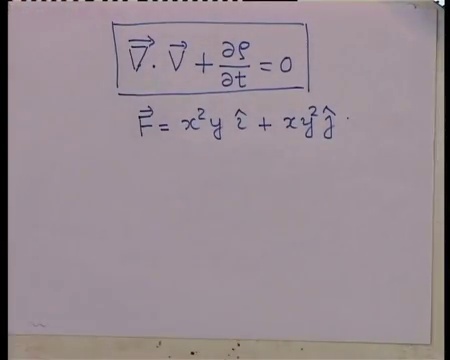 ∇⃗ · V⃗ + ∂ρ/∂t = 0
F⃗ = x²y î + xy² ĵ